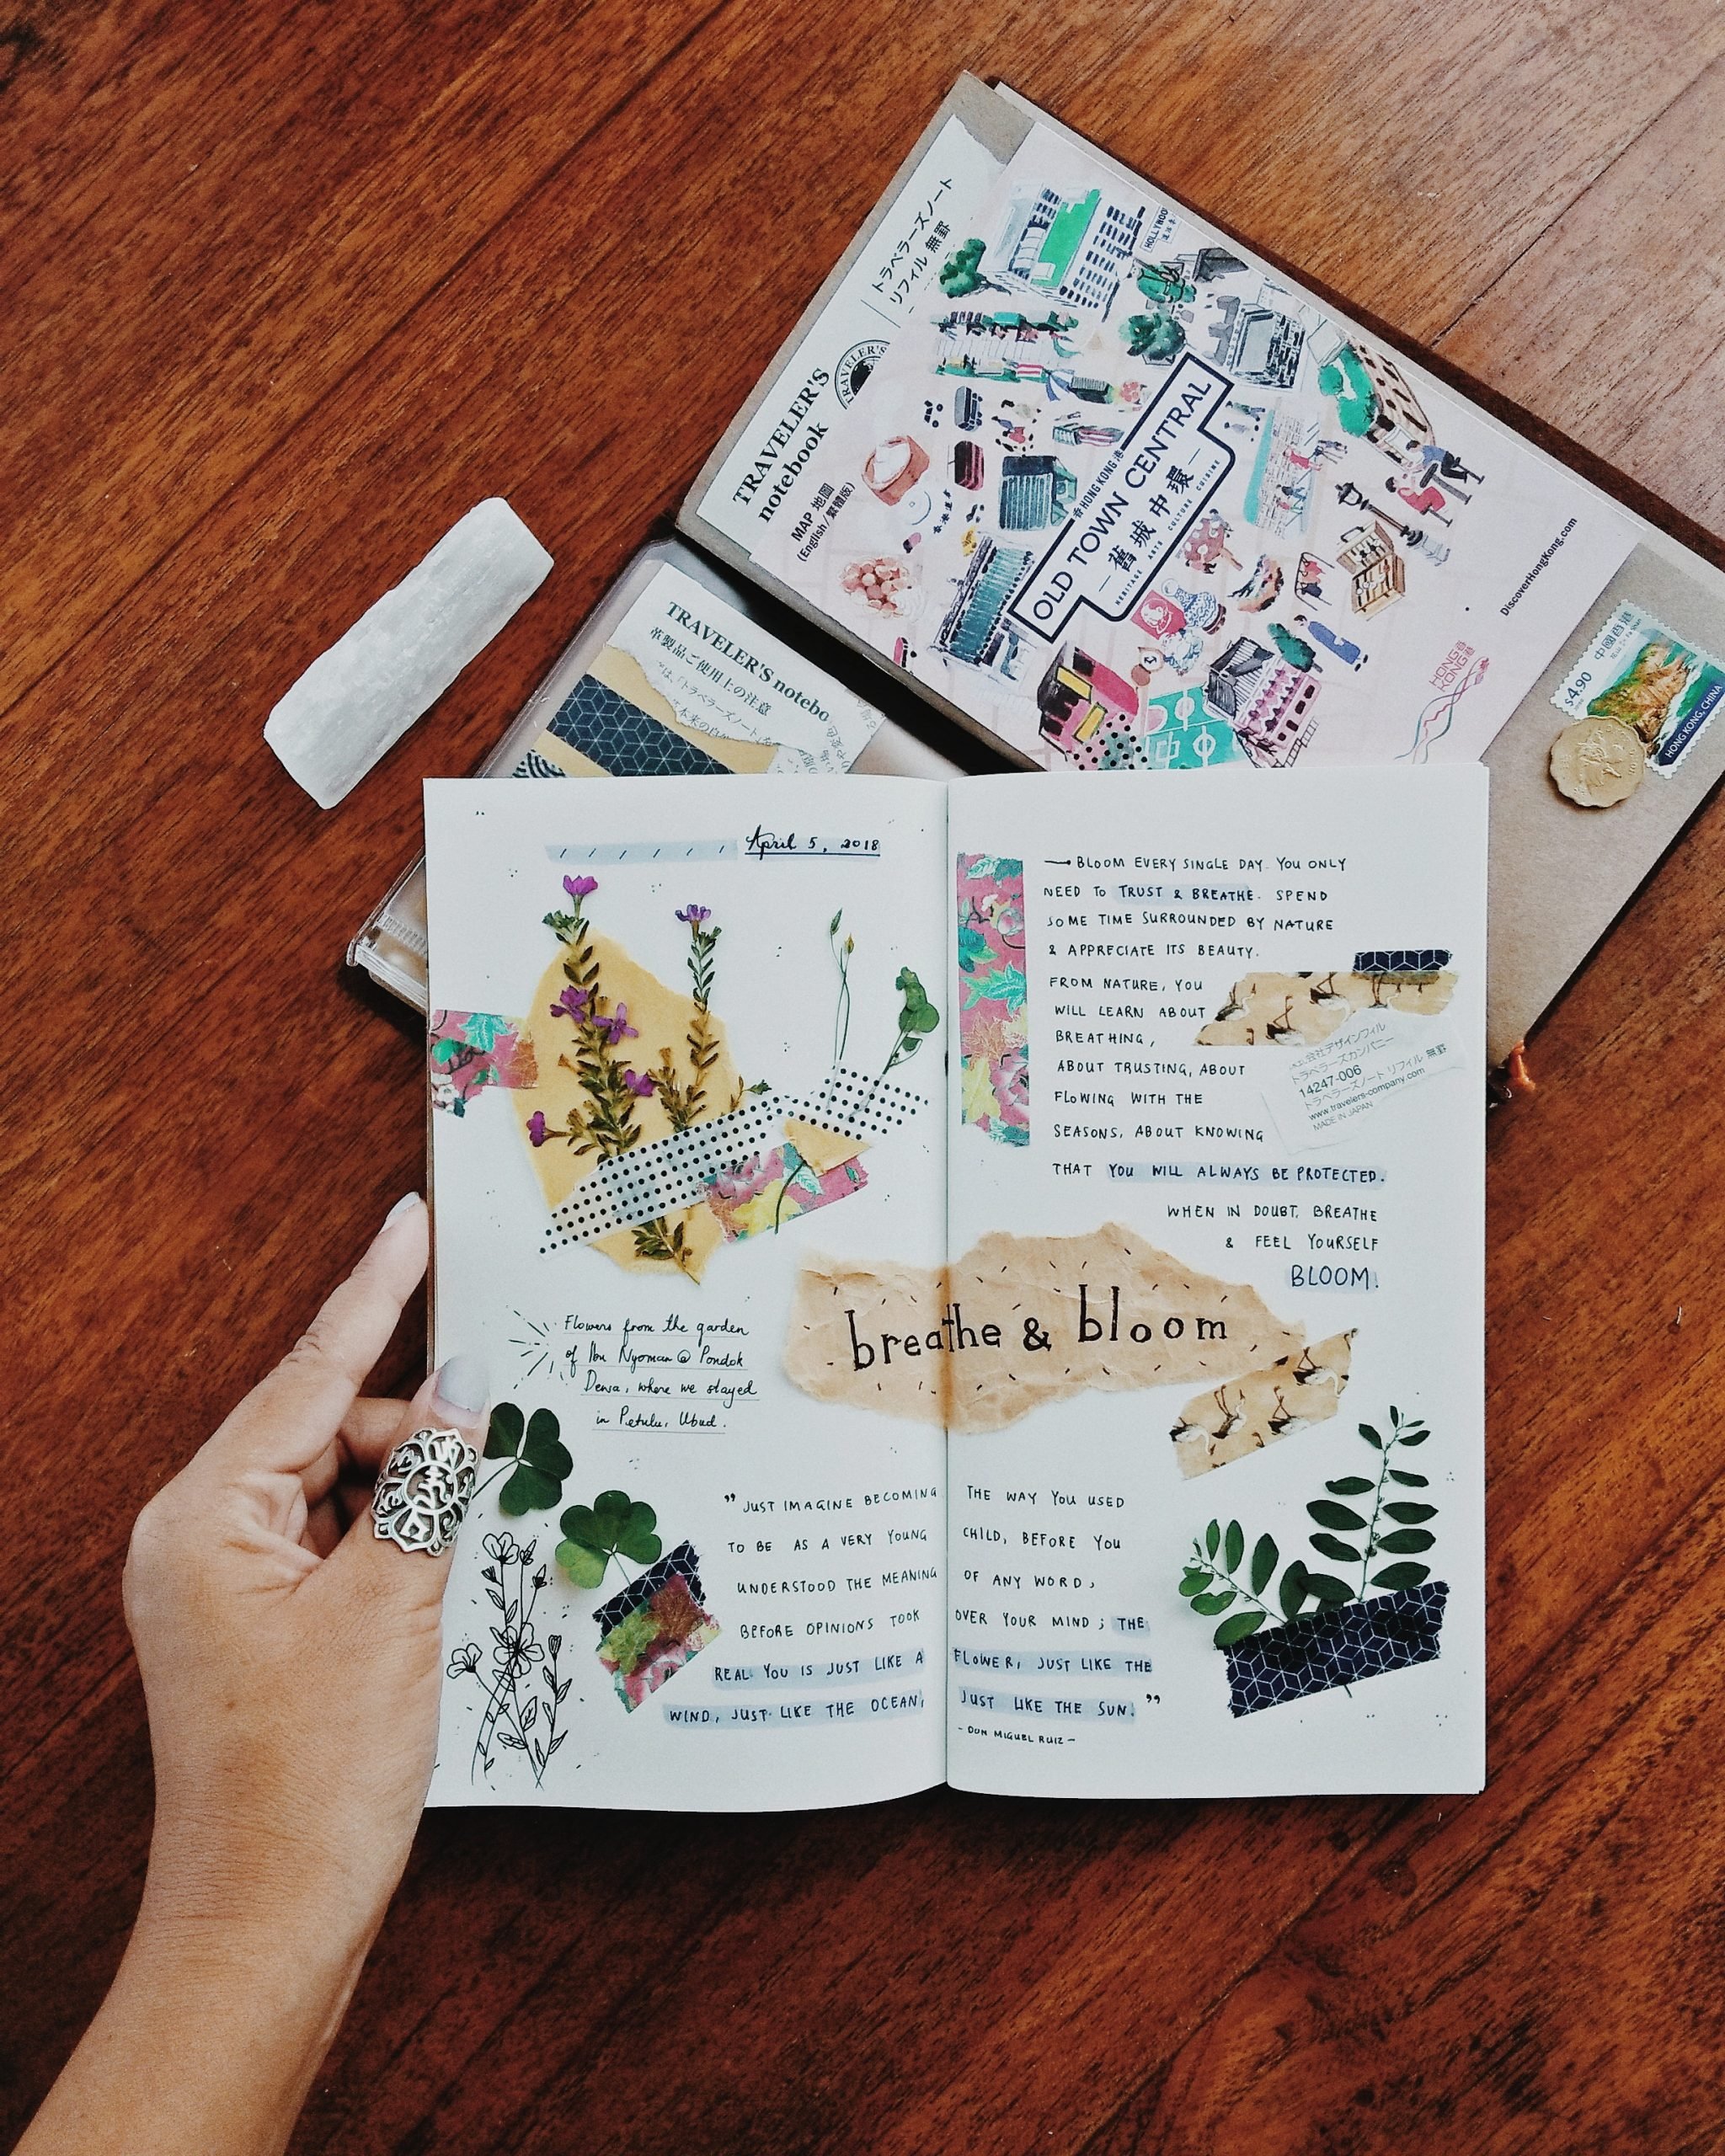 TRAVELER'S
notebook
トラベラーズノート
リフィル 無罫
TRAVELER'S
MAP 地圖
(English / 繁體版)
HOLLYWOOD
香 HONG KONG 港
OLD TOWN CENTRAL
舊城中環
HERITAGE ARTS CULTURE CUISINE
DiscoverHongKong.com
HONG KONG
香港
$4.90
中國香港
HONG KONG, CHINA
TRAVELER'S notebo
革製品ご使用上の注意
April 5, 2018
Flowers from the garden
of Ibu Nyoman @ Pondok
Dewa, where we stayed
in Petulu, Ubud.
BLOOM EVERY SINGLE DAY. YOU ONLY
NEED TO TRUST & BREATHE. SPEND
SOME TIME SURROUNDED BY NATURE
& APPRECIATE ITS BEAUTY.
FROM NATURE, YOU
WILL LEARN ABOUT
BREATHING,
ABOUT TRUSTING, ABOUT
FLOWING WITH THE
SEASONS, ABOUT KNOWING
THAT YOU WILL ALWAYS BE PROTECTED.
WHEN IN DOUBT, BREATHE
& FEEL YOURSELF
BLOOM!
会社デザインフィル
トラベラーズカンパニー
14247-006
トラベラーズノート リフィル 無罫
www.travelers-company.com
MADE IN JAPAN
breathe & bloom
"JUST IMAGINE BECOMING THE WAY YOU USED
TO BE AS A VERY YOUNG CHILD, BEFORE YOU
UNDERSTOOD THE MEANING OF ANY WORD,
BEFORE OPINIONS TOOK OVER YOUR MIND; THE
REAL YOU IS JUST LIKE A FLOWER, JUST LIKE THE
WIND, JUST LIKE THE OCEAN, JUST LIKE THE SUN."
- DON MIGUEL RUIZ -